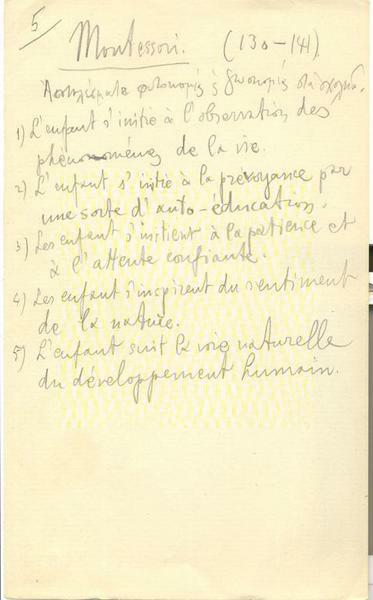 5
Montessori. (130-141)
Ἀποτελέσματα φυτοκομίας ἢ ζωοκομίας στὰ σχολεῖα.
1) L'enfant s'initie à l'observation des
phénomènes de la vie.
2) L'enfant s'initie à la prévoyance par
une sorte d'auto-éducation.
3) Les enfants s'initient à la patience et
à l'attente confiante.
4) Les enfant s'inspirent du sentiment
de la nature.
5) L'enfant suit la voie naturelle
du développement humain.